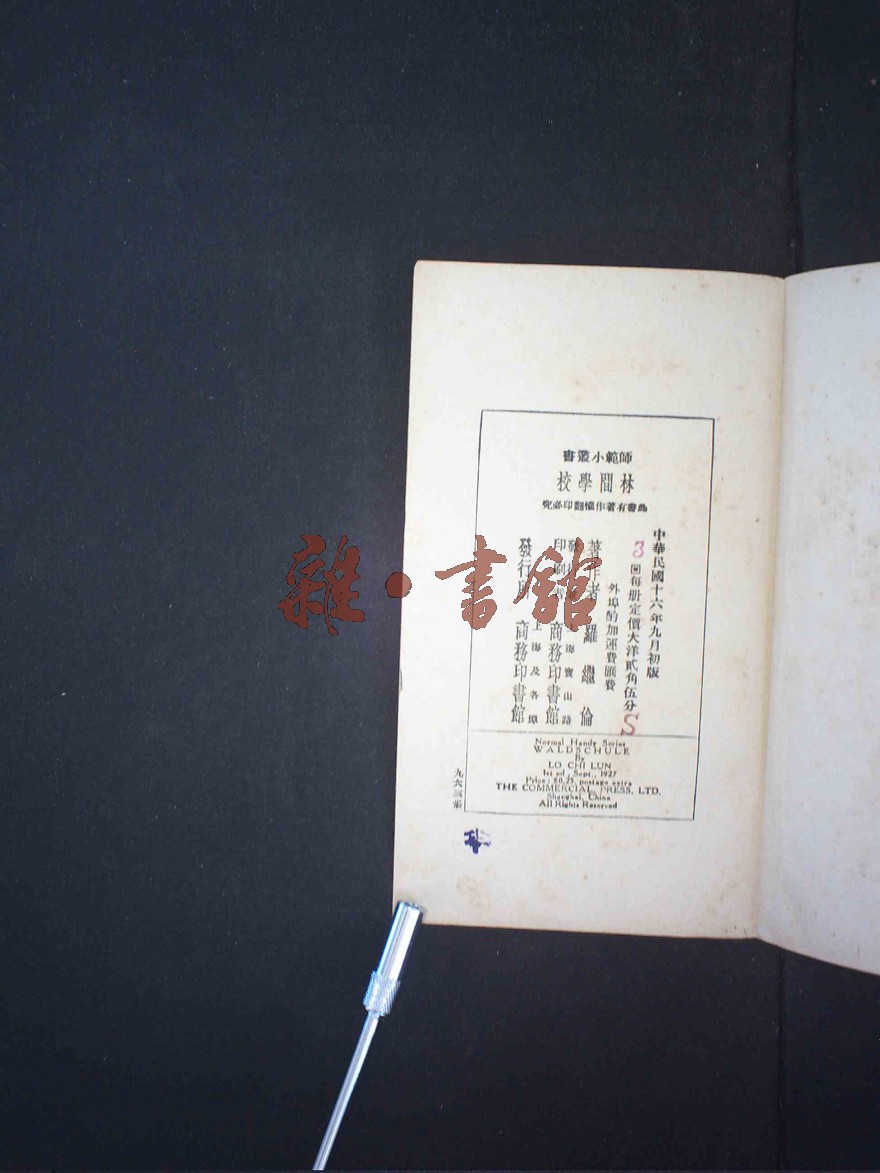 師範小叢書
林間學校
此書有著作權翻印必究
中華民國十六年九月初版
3
回每册定價大洋貳角伍分
S
外埠酌加運費匯費
著作者 羅繼倫
發行 海寶山路
印刷 商務印書館
上海及各埠
發行 商務印書館
Normal Handy Series
WALDSCHULE
By
LO CHI LUN
1st ed., Sept., 1927
Price: $0.25, postage extra
THE COMMERCIAL PRESS, LTD.
Shanghai, China
All Rights Reserved
雜·書館